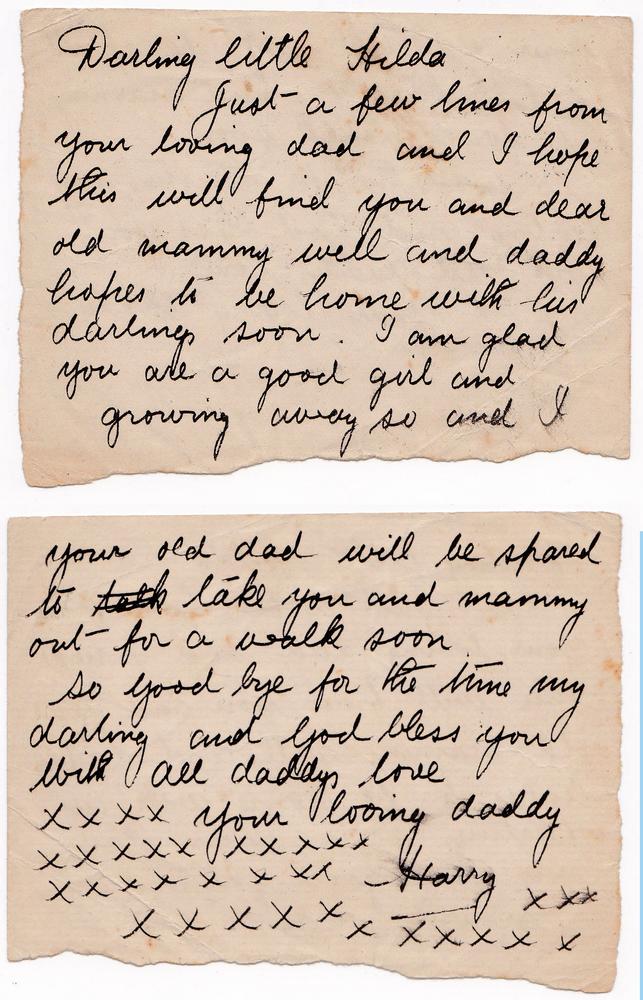 Darling little Hilda
Just a few lines from
your loving dad and I hope
this will find you and dear
old mammy well and daddy
hopes to be home with his
darlings soon. I am glad
you are a good girl and
growing away so and I
your old dad will be spared
to talk take you and mammy
out for a walk soon
So good bye for the time my
darling and God bless you
With all daddys love
x x x x your loving daddy
x x x x x x x x x x
x x x x x x x x Harry
x x x
x x x x x x x x x x x